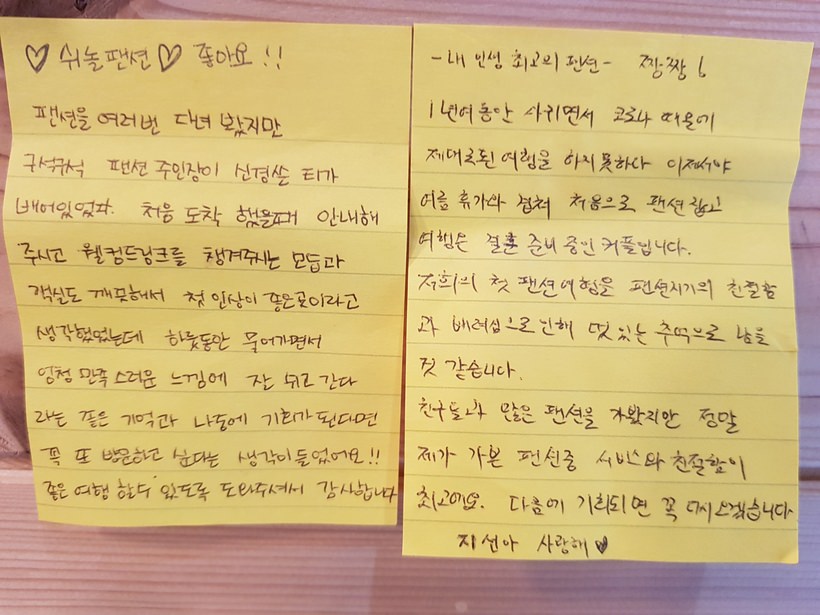 ♡ 쉬놀팬션 ♡ 좋아요 !!
팬션을 여러번 다녀 봤지만
구석구석 팬션 주인장이 신경쓴 티가
배어있었다. 처음 도착 했을때 안내해
주시고 웰컴드링크를 챙겨주시는 모습과
객실도 깨끗해서 첫인상이 좋은곳이라고
생각했었는데 하룻동안 묵어가면서
엄청 만족스러운 느낌에 잔 쉬고 간다
라는 좋은 기억과 나중에 기회가 된다면
꼭 또 방문하고 싶다는 생각이 들었어요!!
좋은 여행 할수 있도록 도와주셔서 감사합니다
-내 인생 최고의 펜션- 짱짱
1년여동안 사귀면서 코로나 때문에
제대로된 여행을 하지 못하다 이제서야
여름 휴가와 겹쳐 처음으로 팬션 잡고
여행온 결혼 준비 중인 커플입니다.
저희의 첫 팬션여행을 펜션지기의 친절함
과 배려심으로 인해 멋 있는 추억으로 남을
것 같습니다.
친구들과 많은 팬션을 가봤지만 정말
제가 가본 팬션중 서비스와 친절함이
최고에요. 다음에 기회되면 꼭 다시오겠습니다
지선아 사랑해 ♥